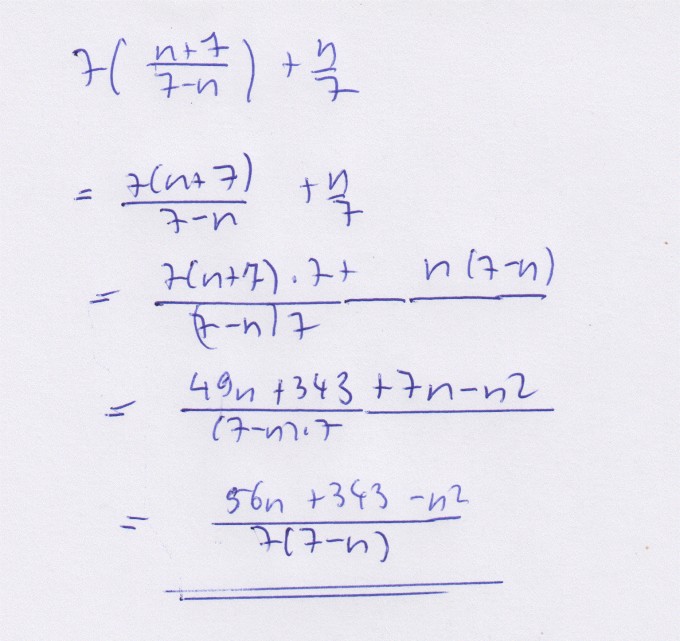 7( (n+7)/(7-n) ) + n/7
= 7(n+7)/(7-n) + n/7
= (7(n+7).7+ n(7-n))/((7-n)7)
= (49n+343+7n-n2)/((7-n).7)
= (56n+343-n²)/(7(7-n))